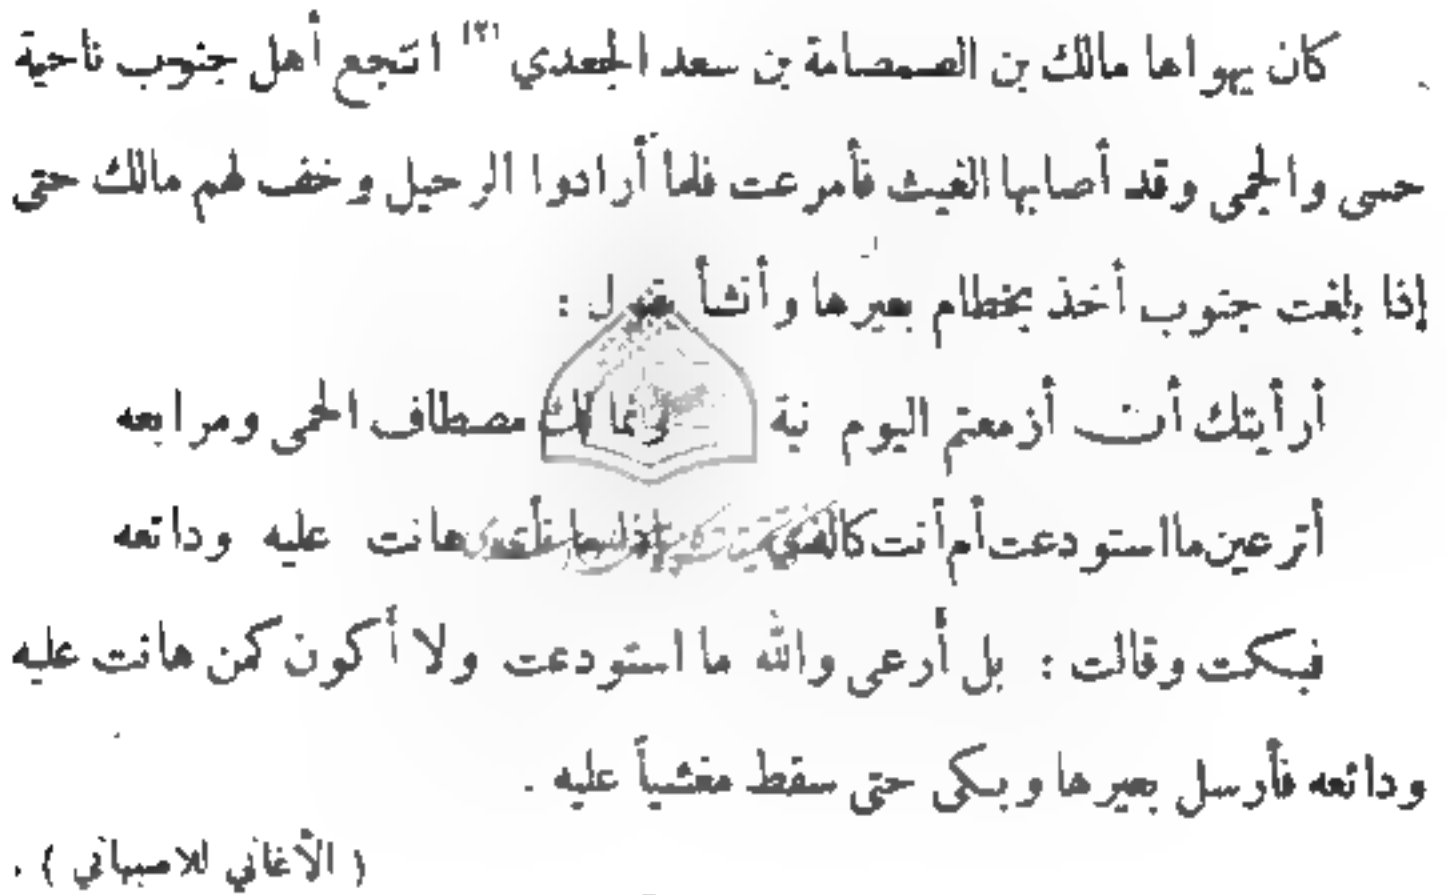 كان يهواها مالك بن الصمصامة بن سعد الجعدي (٢) انتجع أهل جنوب ناحية
حسى والحمى وقد أصابها الغيث فأمرعت فلما أرادوا الرحيل وخف لهم مالك حتى
إذا بلغت جنوب أخذ بخطام بعيرها وأنشأ يقول :
أرأيتك أن أزمعتم اليوم نية وغالك مصطاف الحمى ومرابعه
أترعين ما استودعت أم أنت كالذي إذا ما نأى هانت عليه ودائعه
فبكت وقالت : بل أرعى والله ما استودعت ولا أكون كمن هانت عليه
ودائعه فأرسل بعيرها وبكى حتى سقط مغشياً عليه .
( الأغاني للاصبهاني ) .